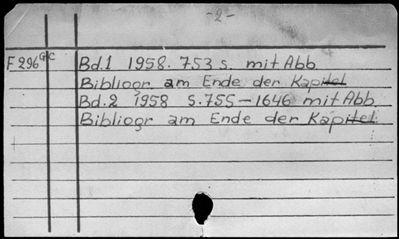 -2-
F 296 G/C Bd.1 1958. 753 s. mit Abb
Bibliogr am Ende der Kapitel
Bd.2 1958 S.755-1646 mit Abb.
Bibliogr am Ende der Kapitel.